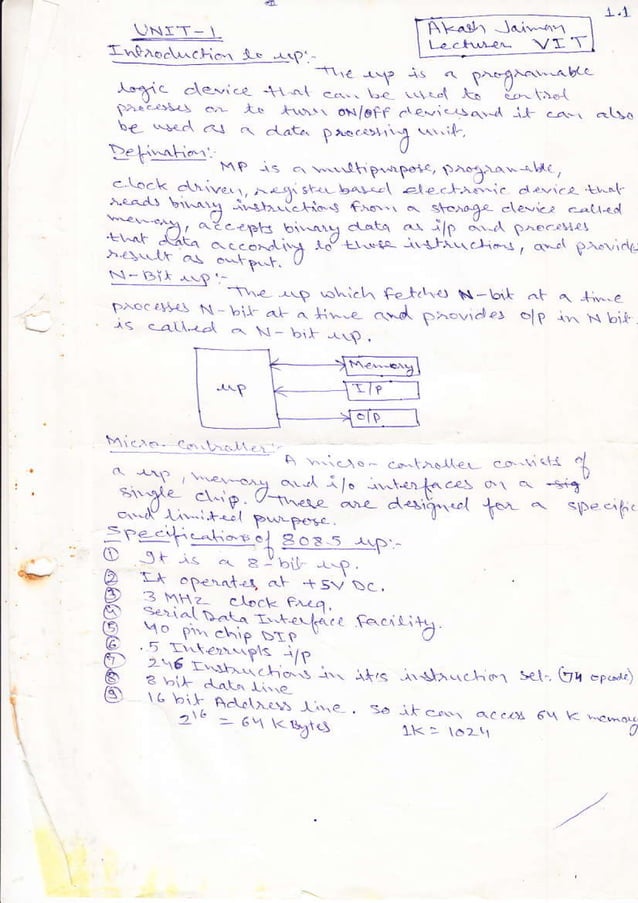 1.1
UNIT-1
Akash Jaiman
Lecturer VIT
Introduction to μp:-
The μp is a programable
logic device that can be used to control
processes or to turn ON/OFF devices and it can also
be used as a data processing unit.
Defination:-
MP is a multipurpose, programable,
clock driven, register based electronic device that
reads binary instructions from a storage device called
memory, accepts binary data as i/p and processes
that data according to those instructions, and provides
result as output.
N-Bit μp:-
The μp which fetches N-bit at a time
processes N-bit at a time and provides o/p in N bit
is called a N-bit μp.
μp
Memory
I/p
o/p
Micro-Controller:-
A micro-controller consists of
a μp, memory and i/o interfaces on a sig
single chip. These are designed for a specific
and limited purpose.
Specifications of 8085 μp:-
① It is a 8-bit μp.
② It operates at +5V DC.
③ 3 MHz clock freq.
④ Serial Data Interface facility.
⑤ 40 pin chip DIP
⑥ .5 Interrupts i/p
⑦ 246 Instructions in it's instruction set. (74 opcode)
⑧ 8 bit data line
⑨ 16 bit Address line. So it can access 64 K memory
2^16 = 64 K Bytes 1K = 1024